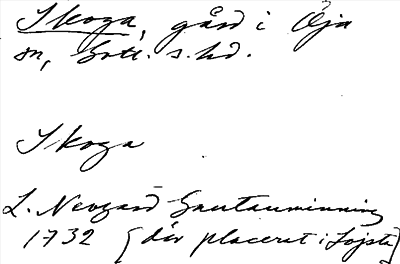 Skoga, gård i Öja
sn, Gotl. s. hd.
Skoga
L. Neogard Gautauminning
1732 [där placeret i Lojsta]